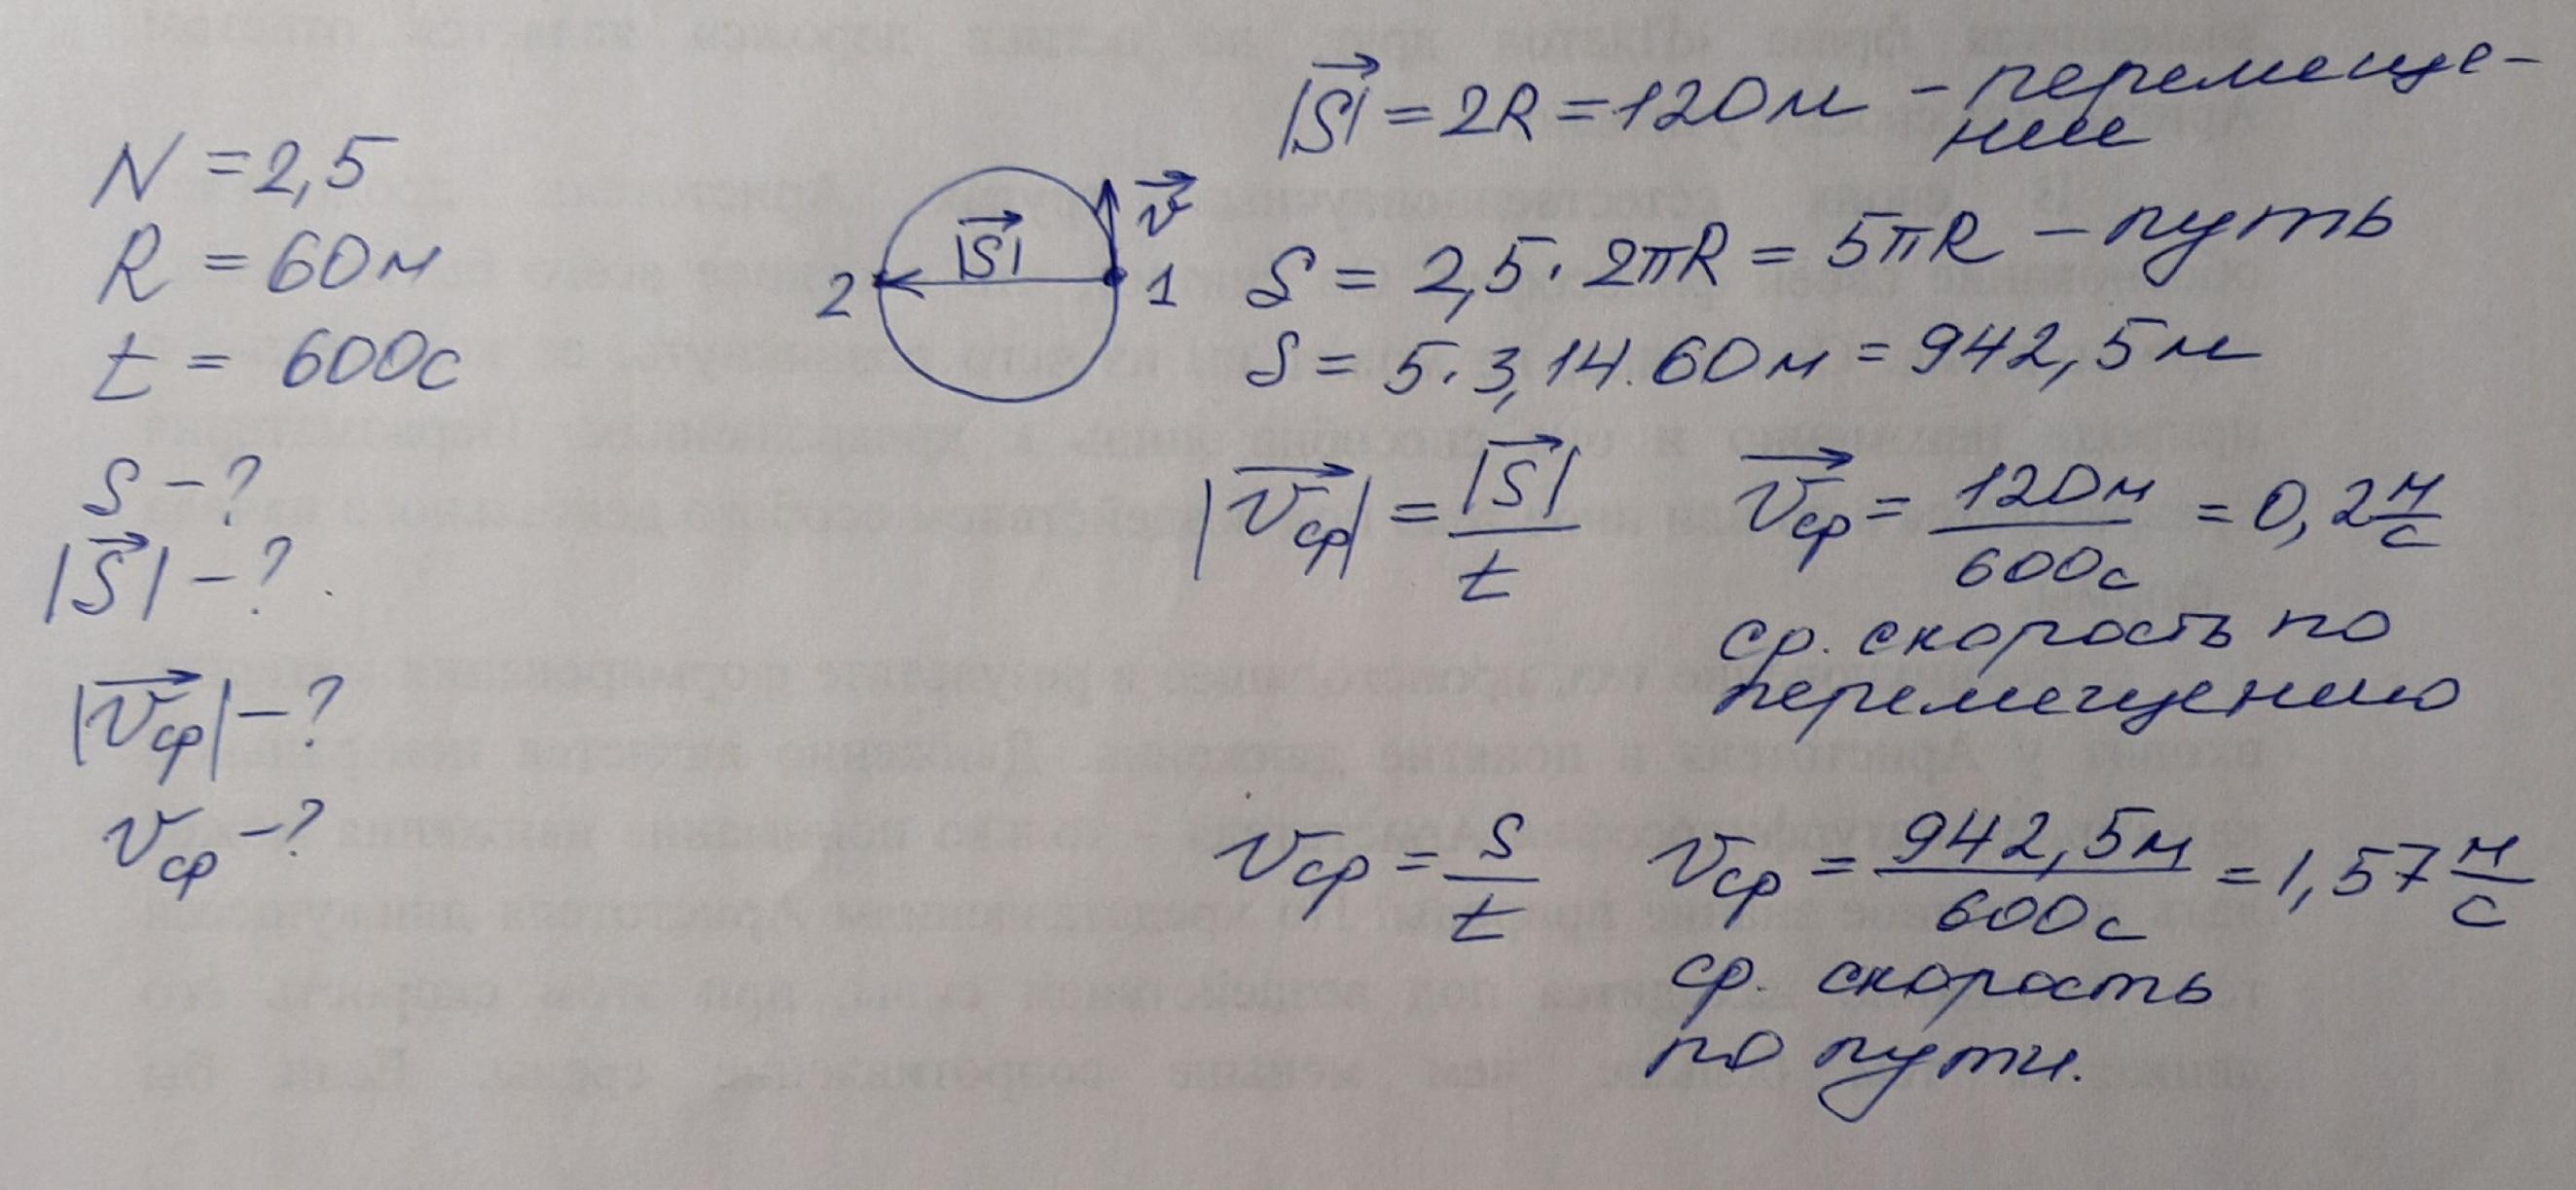 N = 2,5
R = 60м
t = 600с
S – ?
|S⃗| – ?
|v⃗ср| – ?
vср – ?
|S⃗|
v⃗
2
1
|S⃗| = 2R = 120м – перемеще-
ние
S = 2,5 · 2πR = 5πR – путь
S = 5 · 3,14 · 60м = 942,5м
|v⃗ср| = |S⃗| / t    v⃗ср = 120м / 600с = 0,2 м/с
ср. скорость по
перемещению
vср = S / t    vср = 942,5м / 600с = 1,57 м/с
ср. скорость
по пути.